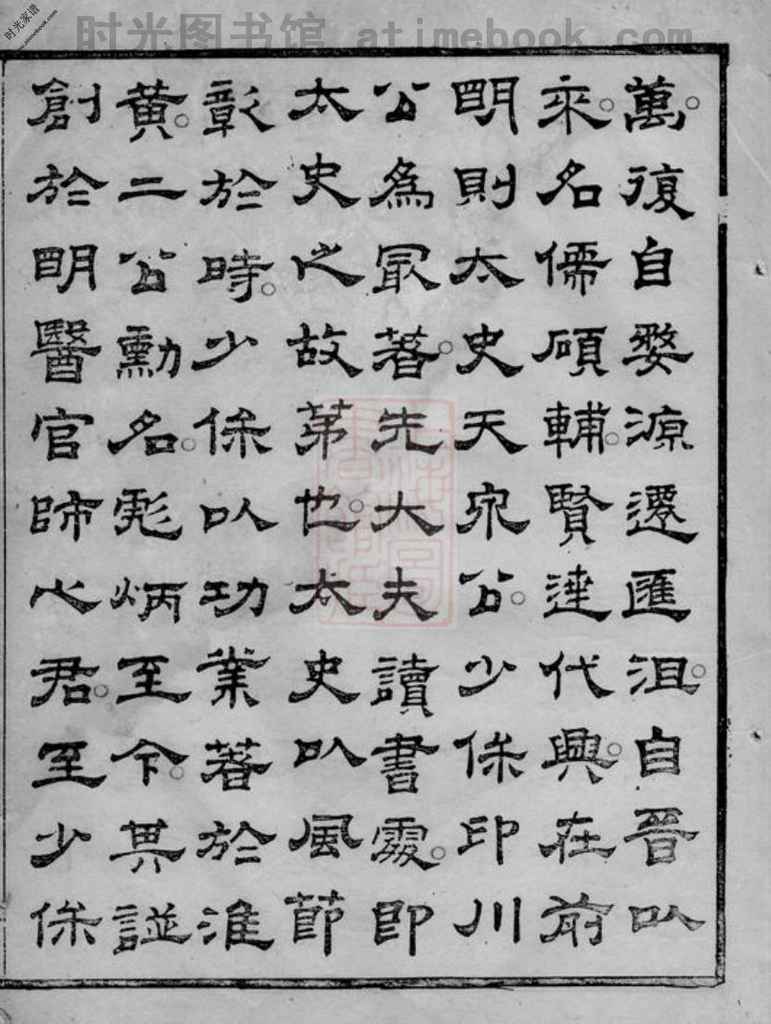 时光图书馆 atimebook.com
时光家谱
www.atimebook.com
萬。復自婺源遷匯沮。自晉以
來。名儒碩輔。賢達代興。在前
明則太史天泉公。少保印川
公為冣著。先大夫讀書處。即
太史之故苐也。太史以風節
彰於時。少保以功業著於淮
黃。二公勳名。彪炳至今。其譜
創於明醫官師心君。至少保